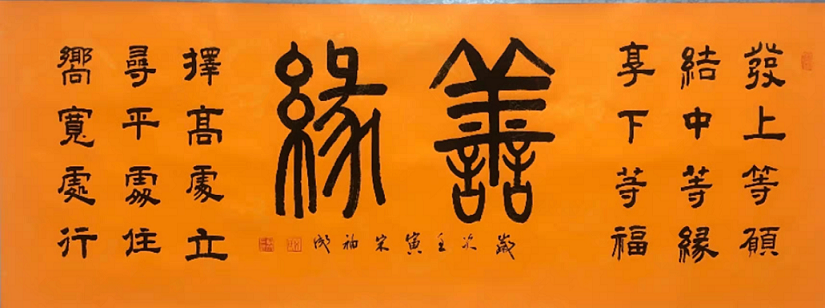 發上等願
結中等緣
享下等福
善緣
擇高處立
尋平處住
嚮寬處行
歲次壬寅宋袖成